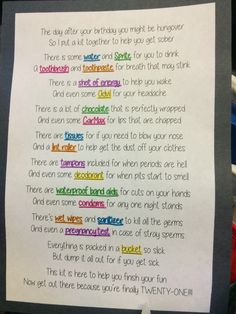 The day after your birthday you might be hungover
So I put a kit together to help you get sober
There is some water and Sprite for you to drink
A toothbrush and toothpaste for breath that may stink
There is a shot of energy to help you wake
And even some Advil for your headache
There is a lot of chocolate that is perfectly wrapped
And even some CarMax for lips that are chapped
There are tissues for if you need to blow your nose
And a lint roller to help get the dust off your clothes
There are tampons included for when periods are hell
And even some deodorant for when pits start to smell
There are waterproof band aids for cuts on your hands
And even some condoms for any one night stands
There's wet wipes and sanitizer to kill all the germs
And even a pregnancy test in case of stray sperms
Everything is packed in a bucket so slick
But dump it all out for if you get sick
This kit is here to help you finish your fun
Now get out there because you're finally TWENTY-ONE!!!